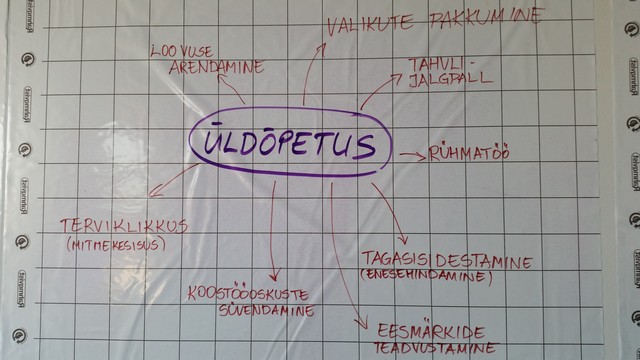 VALIKUTE PAKKUMINE
LOOVUSE
ARENDAMINE
TAHVLI-
JALGPALL
ÜLDÕPETUS
RÜHMATÖÖ
TERVIKLIKKUS
(MITMEKESISUS)
TAGASISIDESTAMINE
(ENESEHINDAMINE)
KOOSTÖÖOSKUSTE
SÜVENDAMINE
EESMÄRKIDE
TEADVUSTAMINE